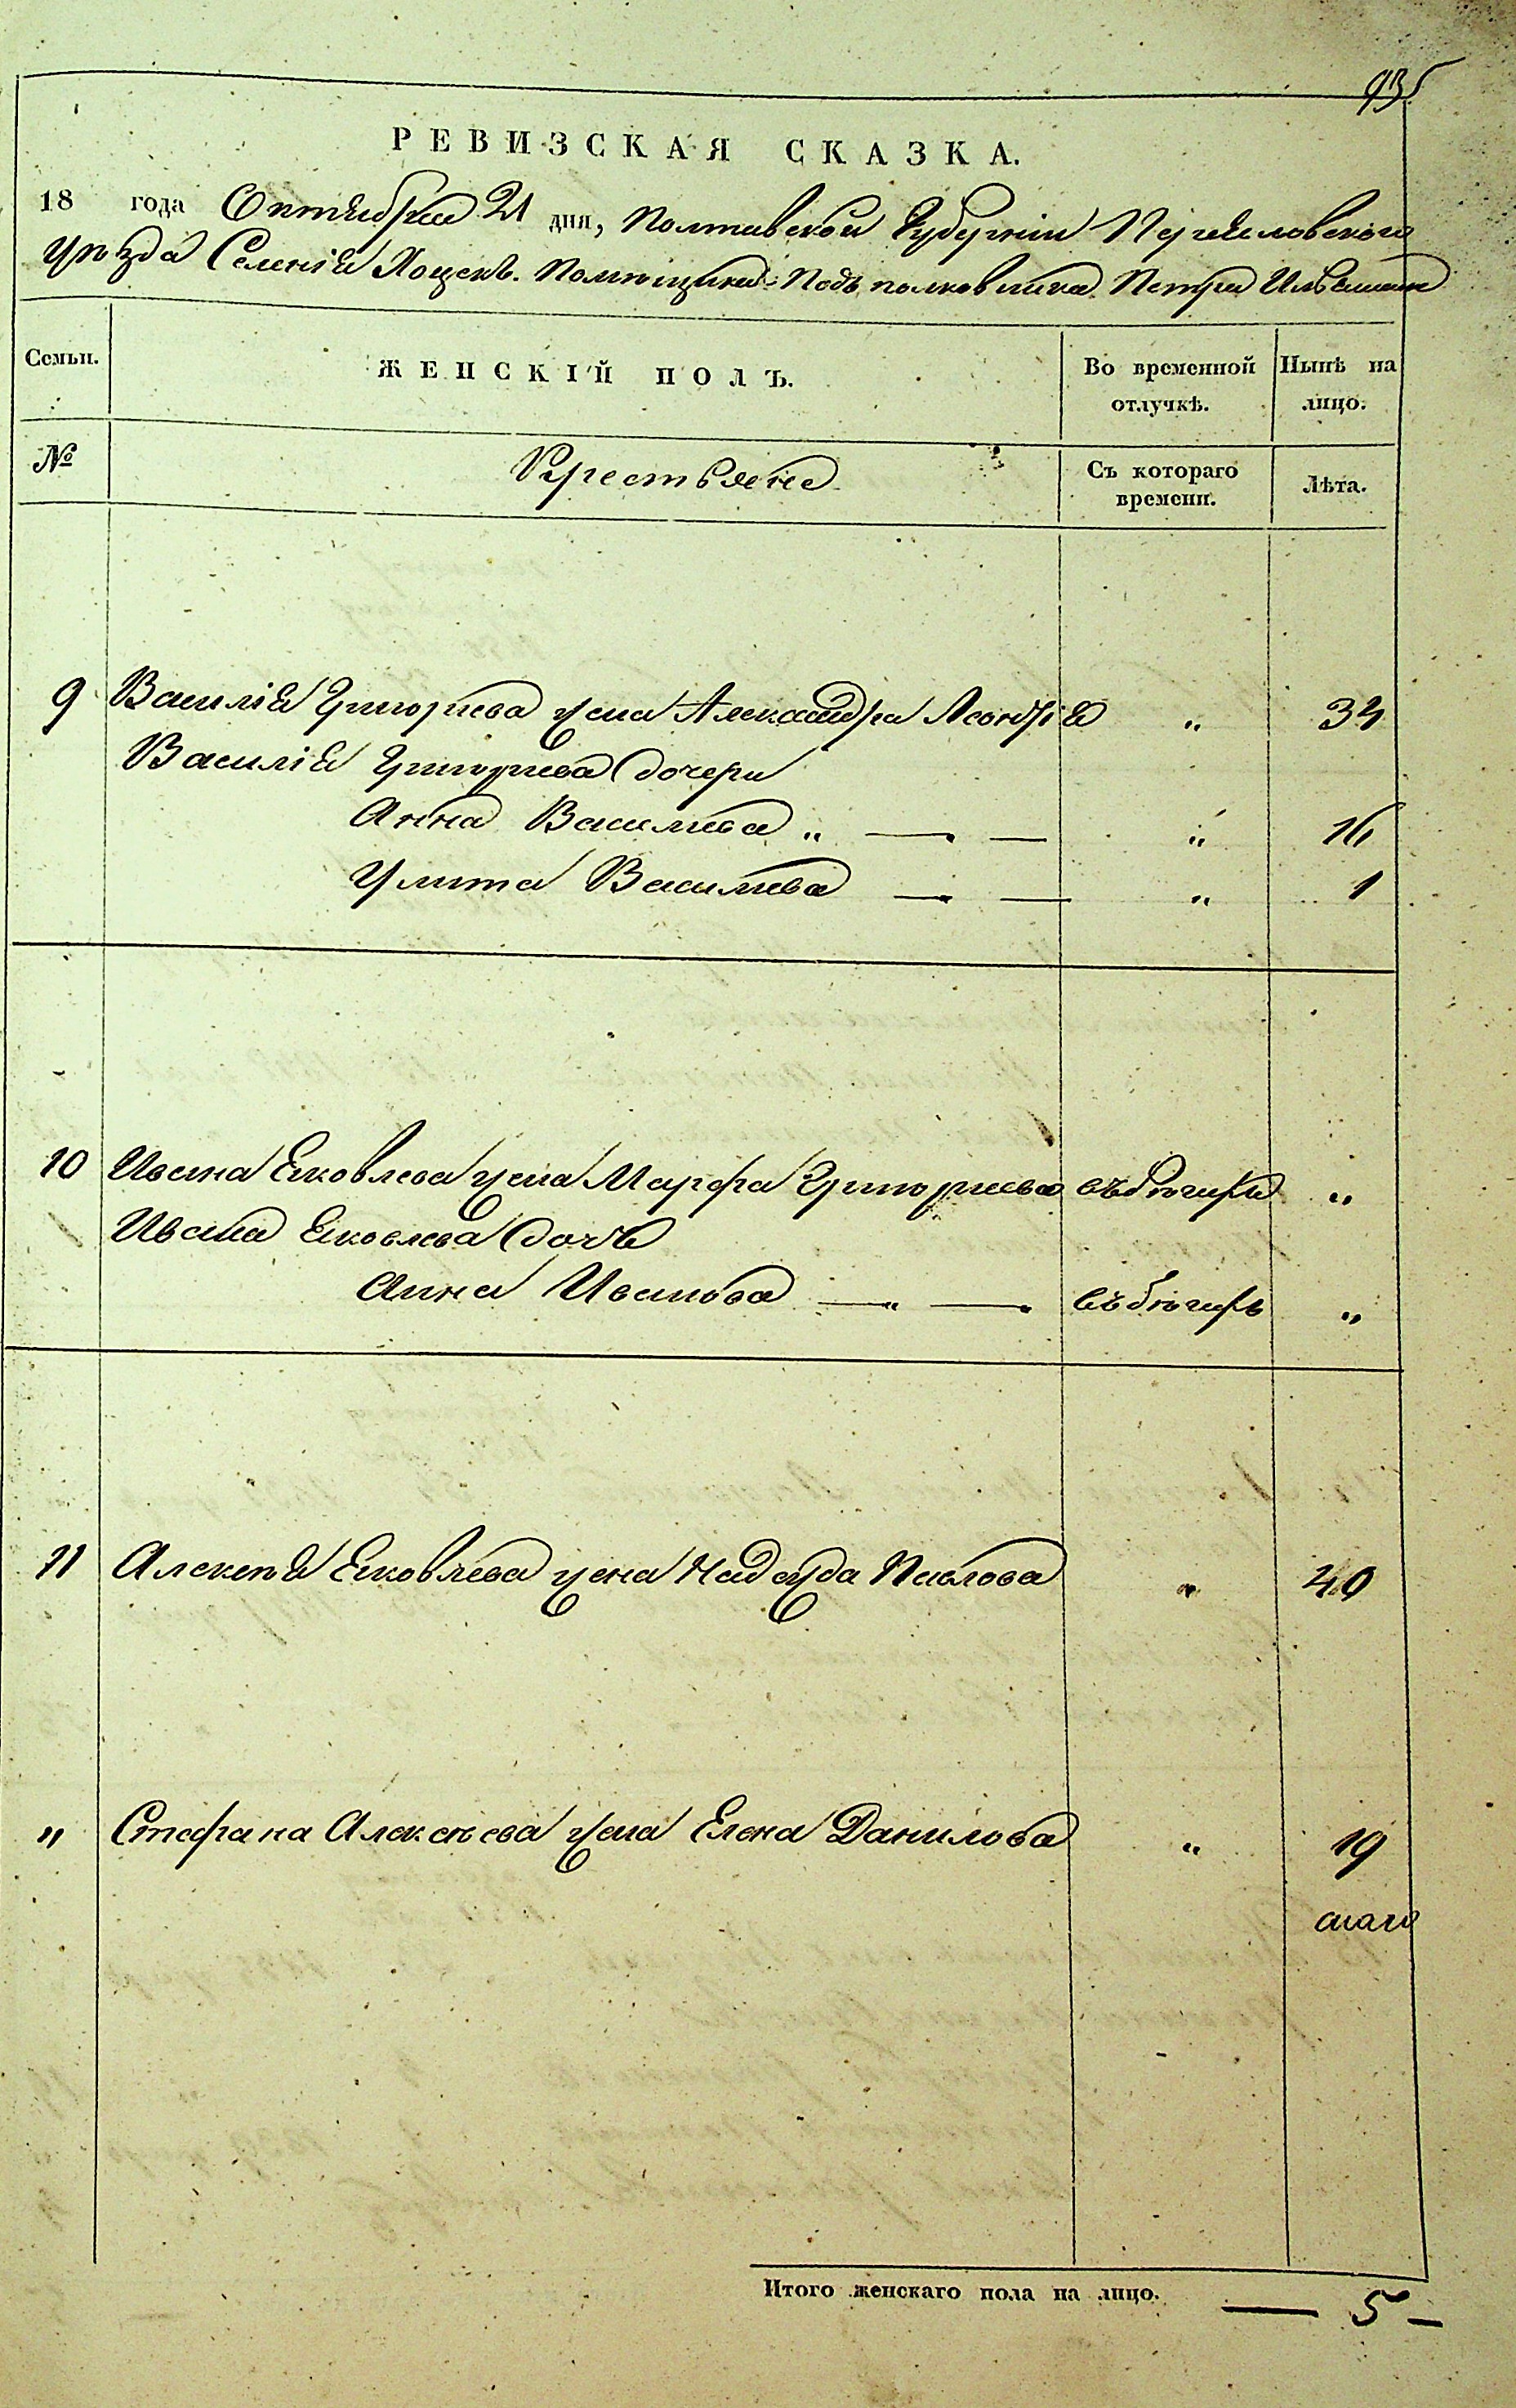 935
РЕВИЗСКАЯ СКАЗКА.
18 года Октября 21 дня, Полтавской Губернии Переяловского
уѣзда Селения Хоцекъ. Помѣщика Подъ полковника Петра Иваненка
Семьи. ЖЕНСКІЙ ПОЛЪ. Во временной отлучкѣ. Нынѣ на лицо.
№ Крестьяне Съ котораго времени. Лѣта.
9 Василія Григорьева жена Александра Леонтія „ 34
Василія Григорьева дочери
Анна Васильева „ — — „ 16
Улита Васильева — — „ 1
10 Ивана Яковлева жена Марфа Григорьева въ бѣгахъ „
Ивана Яковлева дочь
Анна Иванова — — въ бѣгахъ „
11 Алексѣя Яковлева жена Надежда Павлова „ 40
„ Стефана Алексѣева жена Елена Данилова „ 19
Итого женскаго пола на лицо. — 5 —